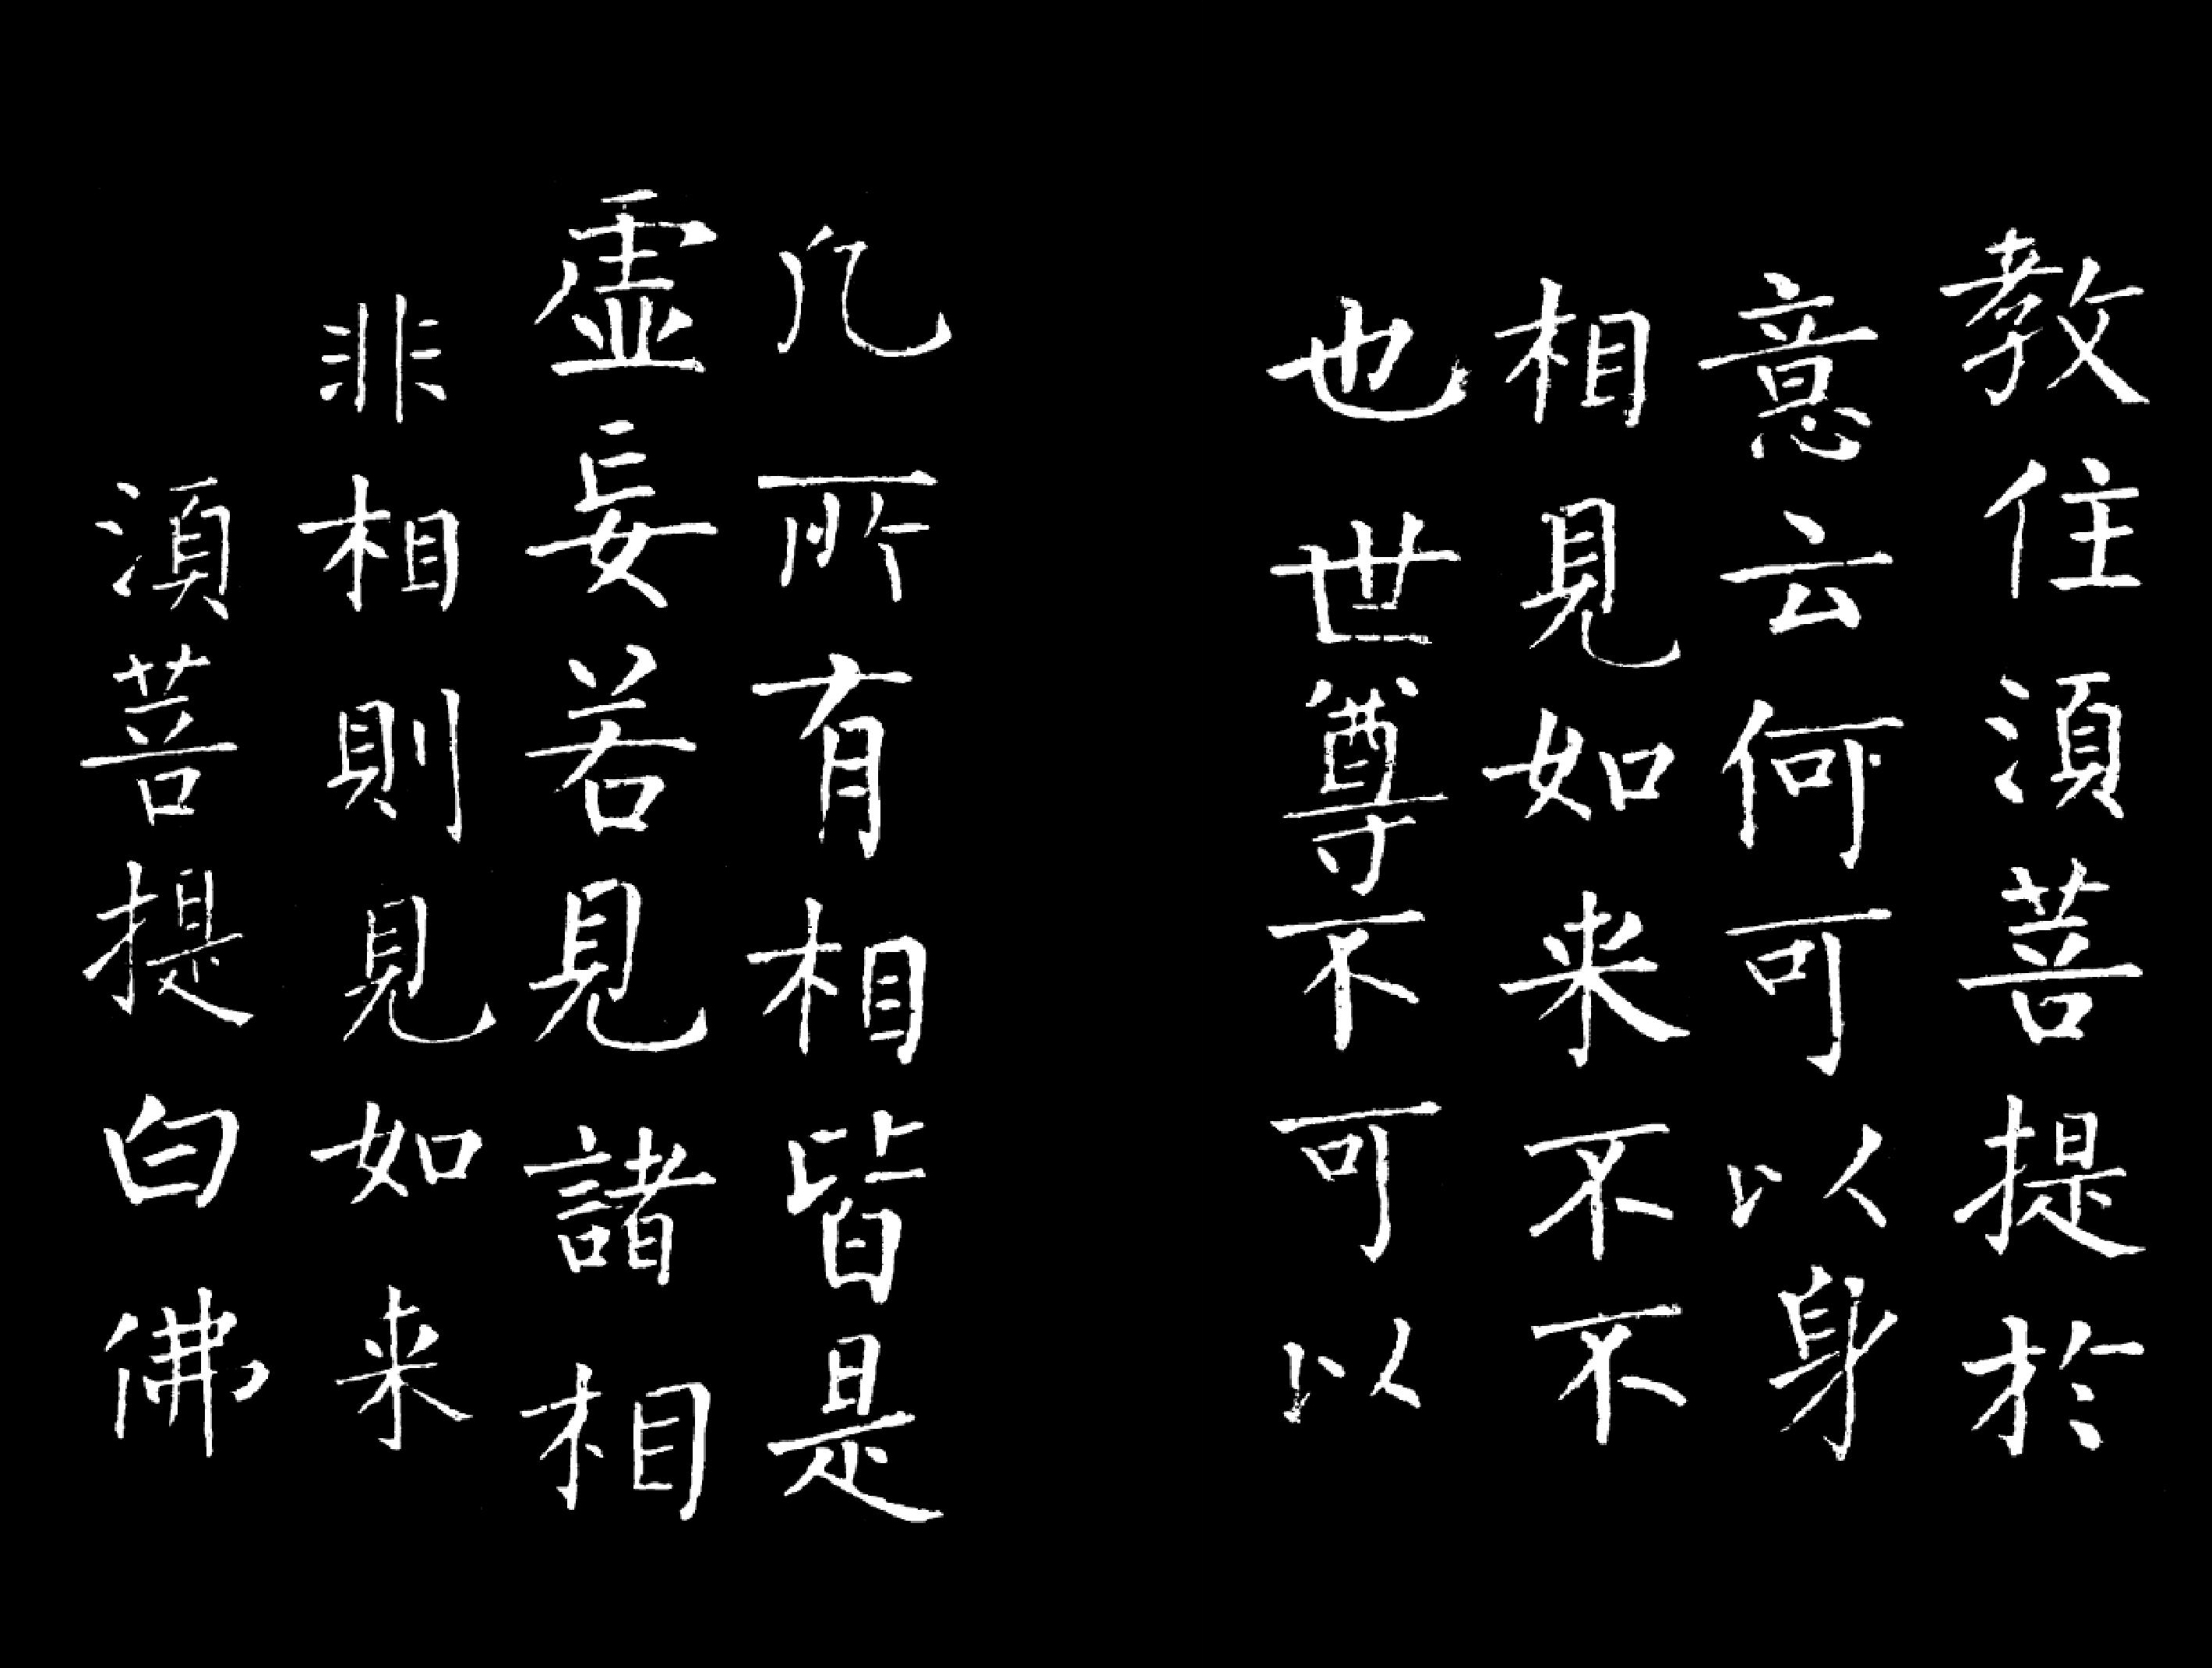 教住須菩提於
意云何可以身
相見如来不不
也世尊不可以
凡所有相皆是
虚妄若見諸相
非相則見如来
須菩提白佛